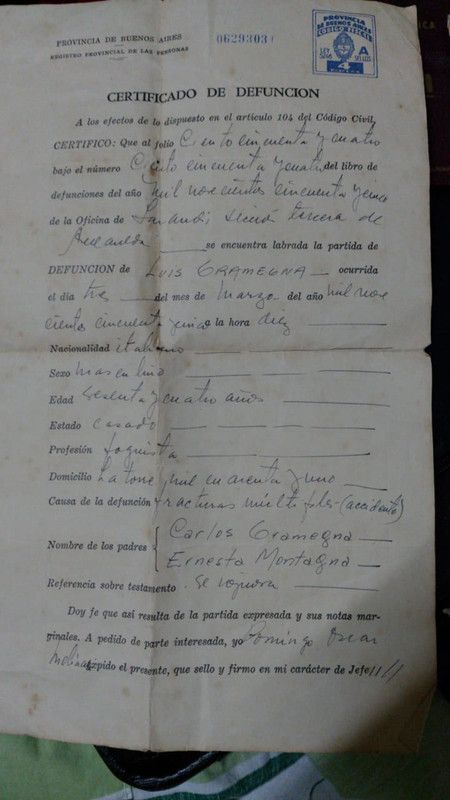 PROVINCIA DE BUENOS AIRES
REGISTRO PROVINCIAL DE LAS PERSONAS
0629303
PROVINCIA
DE BUENOS AIRES
CODIGO FISCAL
LEY
A
SELLOS
4
CERTIFICADO DE DEFUNCION
A los efectos de lo dispuesto en el artículo 104 del Código Civil,
CERTIFICO: Que al folio Ciento cincuenta y cuatro
bajo el número Ciento cincuenta y cuatro del libro de
defunciones del año mil novecientos cincuenta y cinco
de la Oficina de Sarandí sección tercera de
Avellaneda se encuentra labrada la partida de
DEFUNCION de LUIS GRAMEGNA ocurrida
el día tres del mes de marzo del año mil nove
cientos cincuenta y cinco la hora diez
Nacionalidad italiano
Sexo masculino
Edad sesenta y cuatro años
Estado casado
Profesión foguista
Domicilio Latorre mil
Causa de la defunción fracturas múltiples - (accidente)
Nombre de los padres
Carlos Gramegna
Ernesta Montagna
Referencia sobre testamento se ignora
Doy fe que así resulta de la partida expresada y sus notas mar-
ginales. A pedido de parte interesada, yo Domingo Oscar
Molina expido el presente, que sello y firmo en mi carácter de Jefe